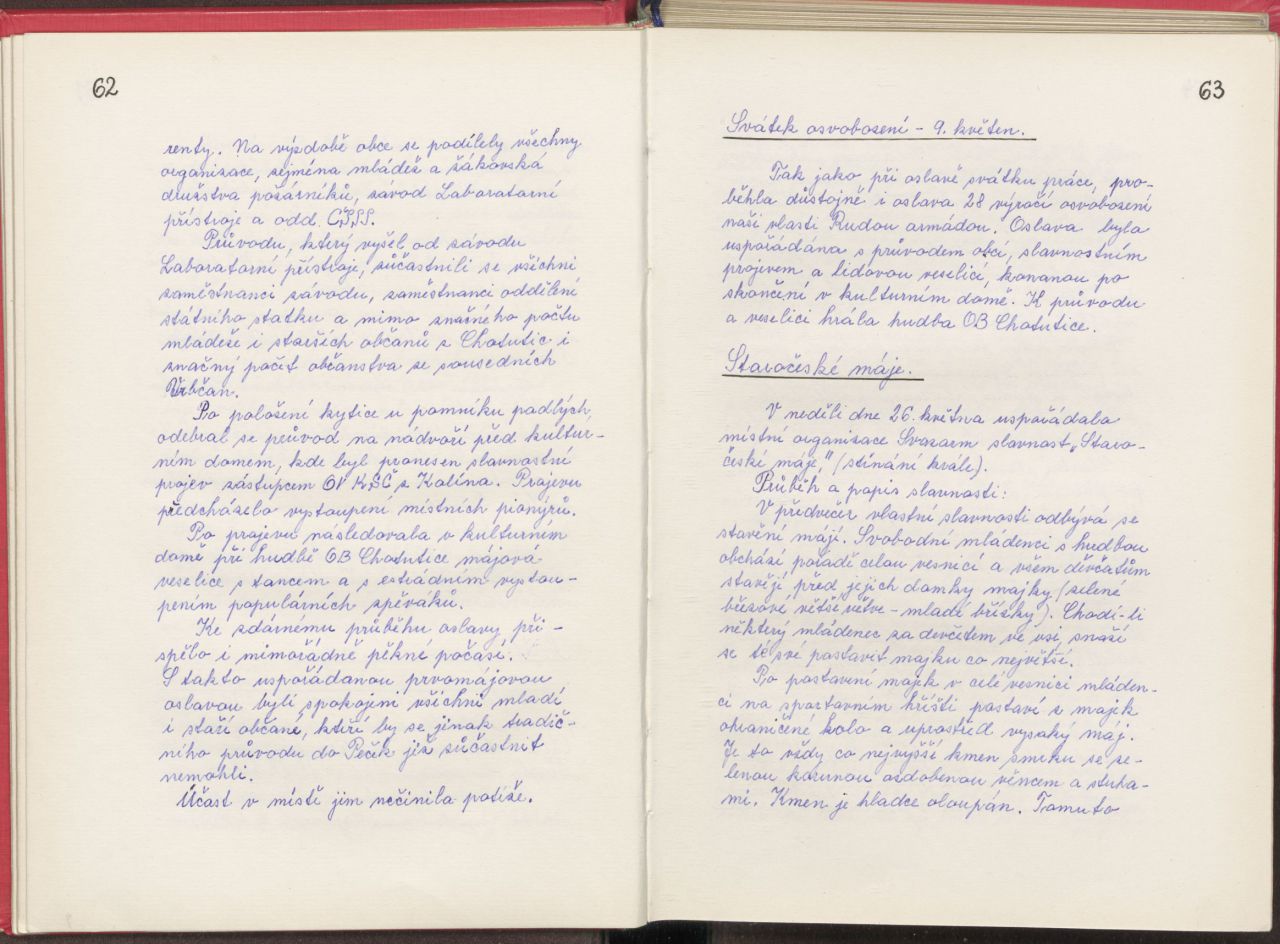 62
renty. Na výzdobě obce se podílely všechny
organizace, zejména mládež a žákovská
družstva požárníků, závod Laboratorní
přístroje a odd. ČSSS.
Průvodu, který vyšel od závodu
Laboratorní přístroje, zúčastnili se všichni
zaměstnanci závodu, zaměstnanci oddělení
státního statku a mimo značného počtu
mládeže i starších občanů z Chotutic i
značný počet občanstva ze sousedních
Vrbčan.
Po položení kytice u pomníku padlých,
odebral se průvod na nádvoří před kultur-
ním domem, kde byl pronesen slavnostní
projev zástupcem OV KSČ z Kolína. Projevu
předcházelo vystoupení místních pionýrů.
Po projevu následovala v kulturním
domě při hudbě OB Chotutice májová
veselice s tancem a s estrádním vystou-
pením populárních zpěváků.
Ke zdárnému průběhu oslavy při-
spělo i mimořádně pěkné počasí.
S takto uspořádanou prvomájovou
oslavou byli spokojeni všichni mladí
i staří občané, kteří by se jinak tradič-
ního průvodu do Peček již zúčastnit
nemohli.
Účast v místě jim nečinila potíže.
63
Svátek osvobození - 9. květen.
Tak jako při oslavě svátku práce, pro-
běhla důstojně i oslava 28 výročí osvobození
naší vlasti Rudou armádou. Oslava byla
uspořádána s průvodem obcí, slavnostním
projevem a lidovou veselicí, konanou po
skončení v kulturním domě. K průvodu
a veselici hrála hudba OB Chotutice.
Staročeské máje.
V neděli dne 26. května uspořádala
místní organizace Svazarm slavnost „Staro-
české máje," (stínání krále).
Průběh a popis slavnosti:
V předvečer vlastní slavnosti odbývá se
stavění májí. Svobodní mládenci s hudbou
obchází pořadě celou vesnici a všem děvčatům
stavějí před jejich domky májky (zelené
březové větší větve - mladé břízky). Chodí-li
některý mládenec za děvčetem ve vsi, snaží
se té své postavit májku co největší.
Po postavení májek v celé vesnici mláden-
ci na sportovním hřišti postaví z májek
ohraničené kolo a uprostřed vysoký máj.
Je to vždy co nejvyšší kmen smrku se ze-
lenou korunou ozdobenou věncem a stuha-
mi. Kmen je hladce oloupán. Tomuto